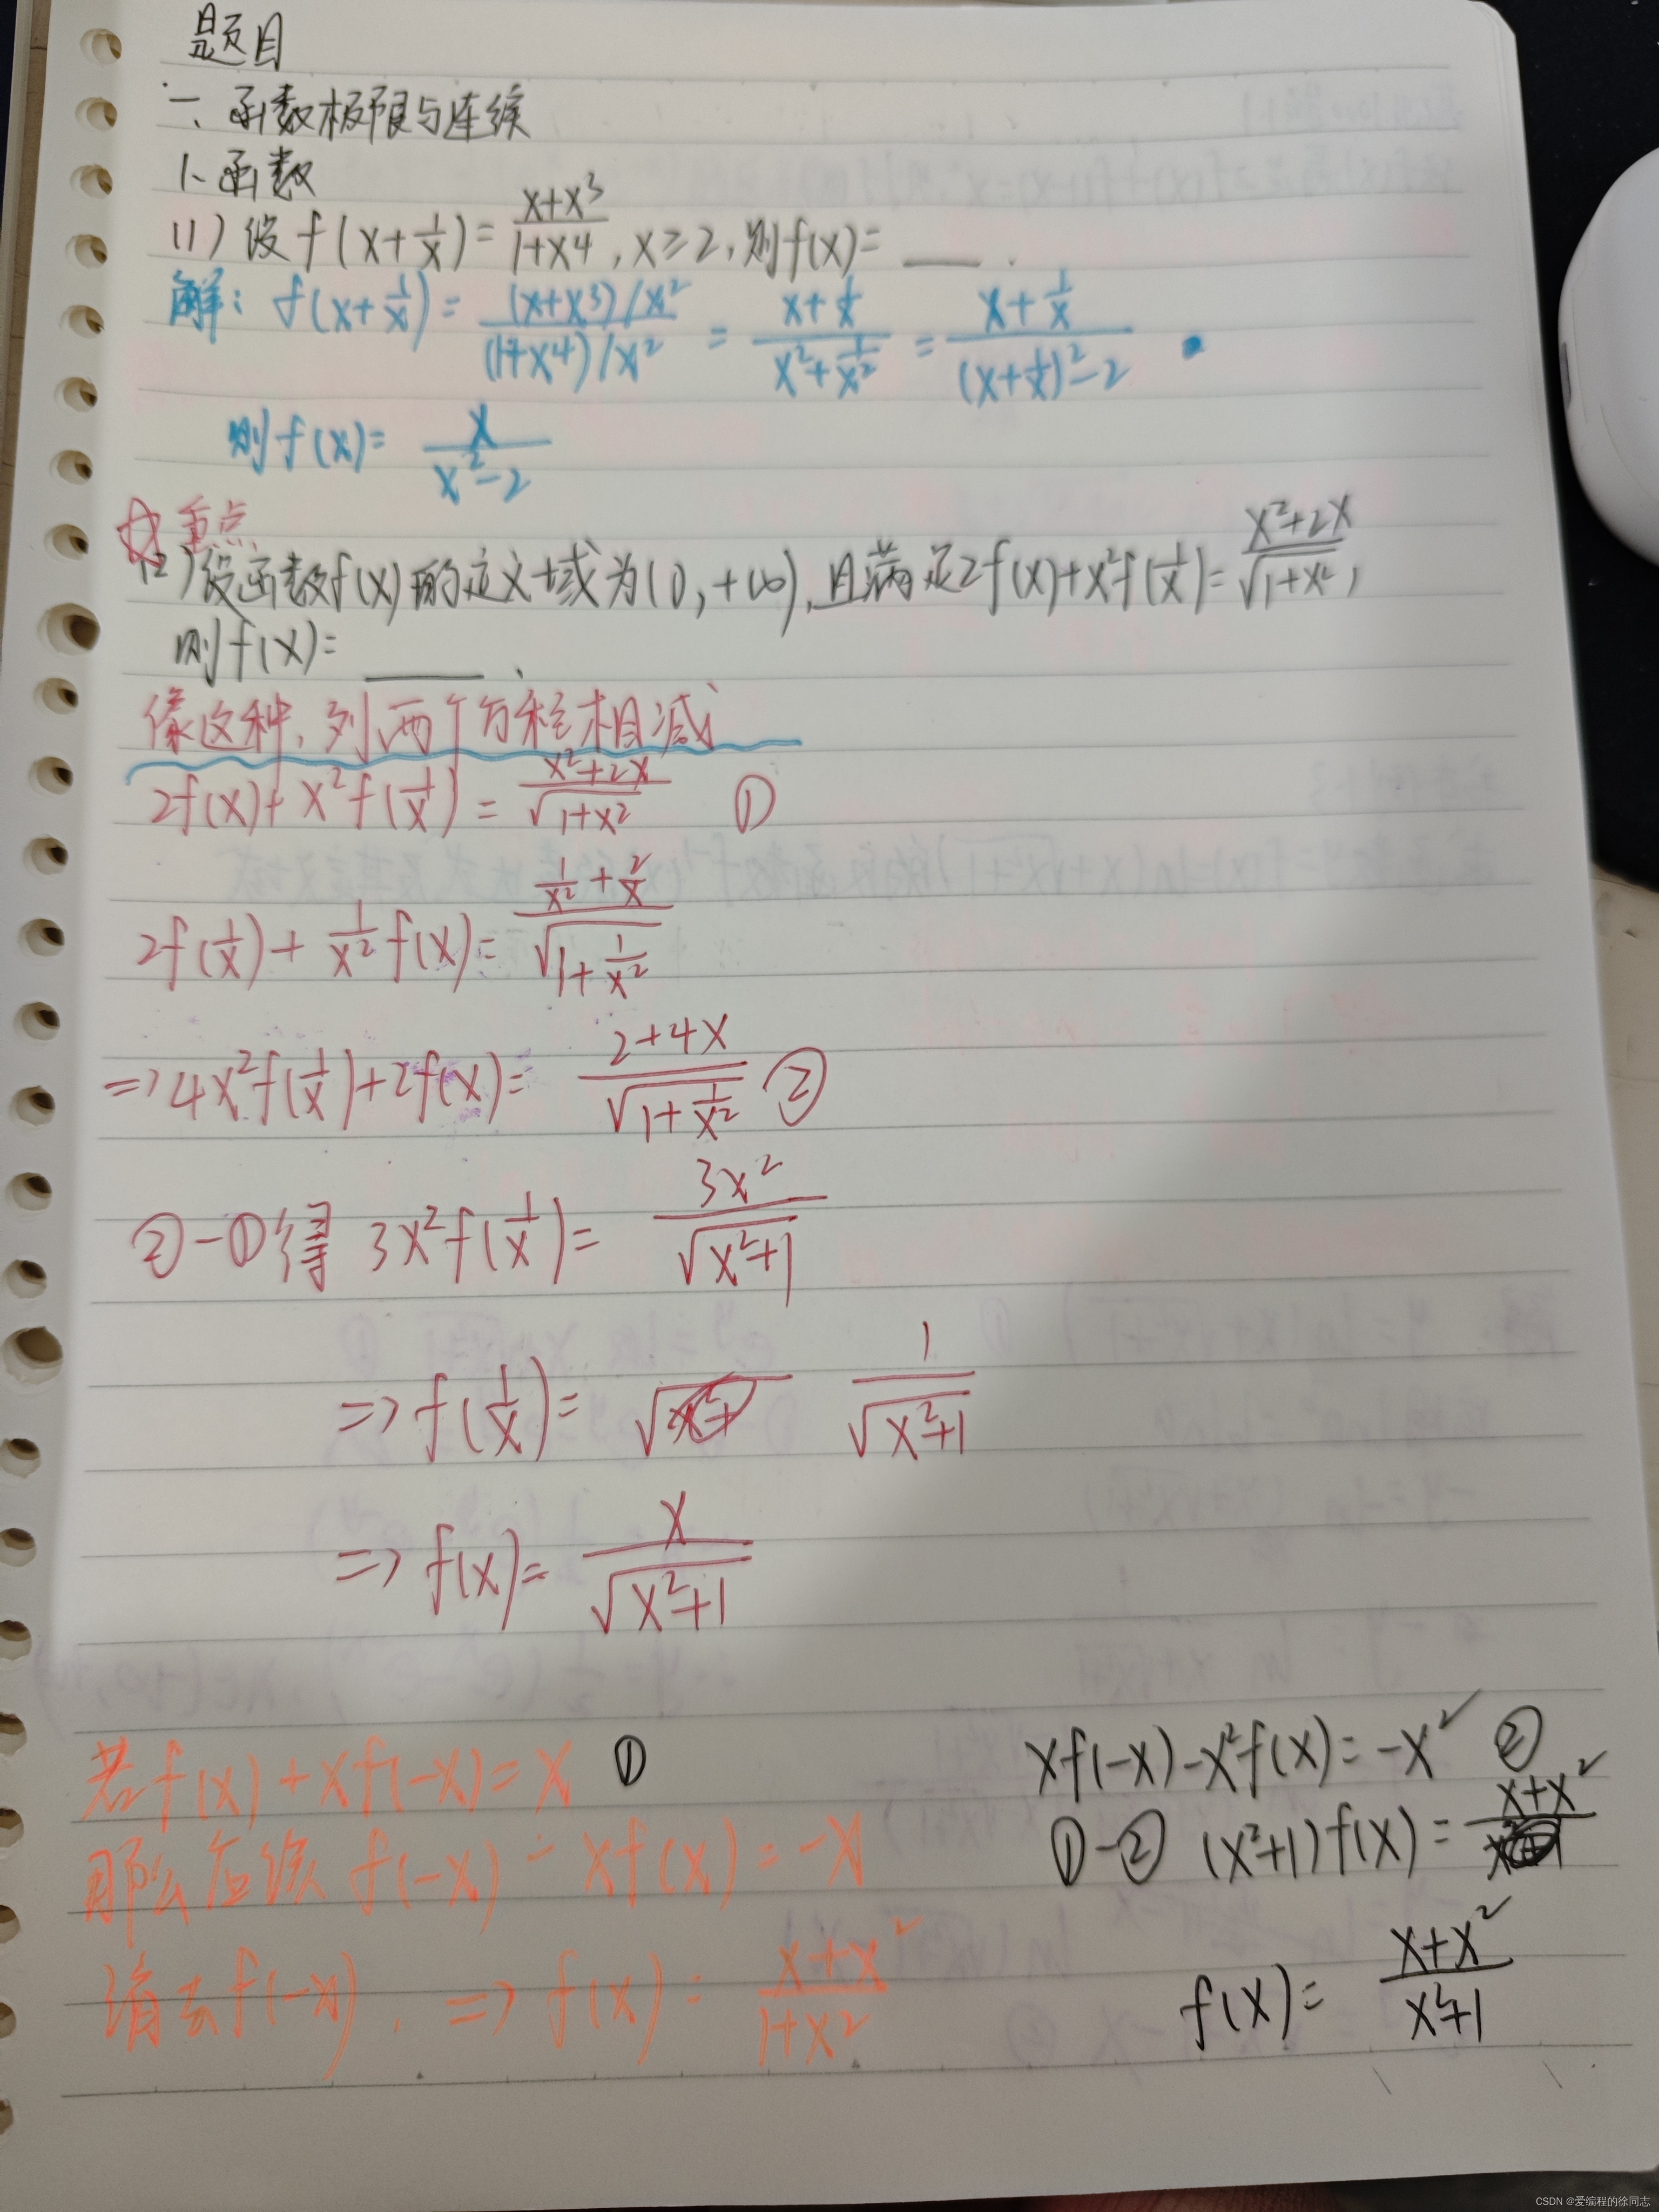 题目
一、函数极限与连续
1、函数
(1) 设 f(x+1/x) = (x+x³)/(1+x⁴), x≥2, 则f(x)= ____ .
解: f(x+1/x) = ((x+x³)/x²)/((1+x⁴)/x²) = (x+1/x)/(x²+1/x²) = (x+1/x)/((x+1/x)²-2)
则f(x)= x/(x²-2)
☆重点
(2) 设函数f(x)的定义域为(0,+∞), 且满足2f(x)+x²f(1/x)= (x²+2x)/√(1+x²),
则f(x)= ____ .
像这种,列两个方程相减
2f(x)+x²f(1/x) = (x²+2x)/√(1+x²) ①
2f(1/x)+1/x² f(x)= (1/x²+2/x)/√(1+1/x²)
=> 4x²f(1/x)+2f(x)= (2+4x)/√(1+1/x²) ②
②-①得 3x²f(1/x)= 3x²/√(x²+1)
=> f(1/x)= 1/√(x²+1)
=> f(x)= x/√(x²+1)
若f(x)+xf(-x)=x ①
那么应该f(-x)-xf(x)=-x
消去f(-x), => f(x)= (x+x²)/(1+x²)
xf(-x)-x²f(x)=-x² ②
①-② (x²+1)f(x)= x+x²
f(x)= (x+x²)/(x²+1)
CSDN @爱编程的徐同志